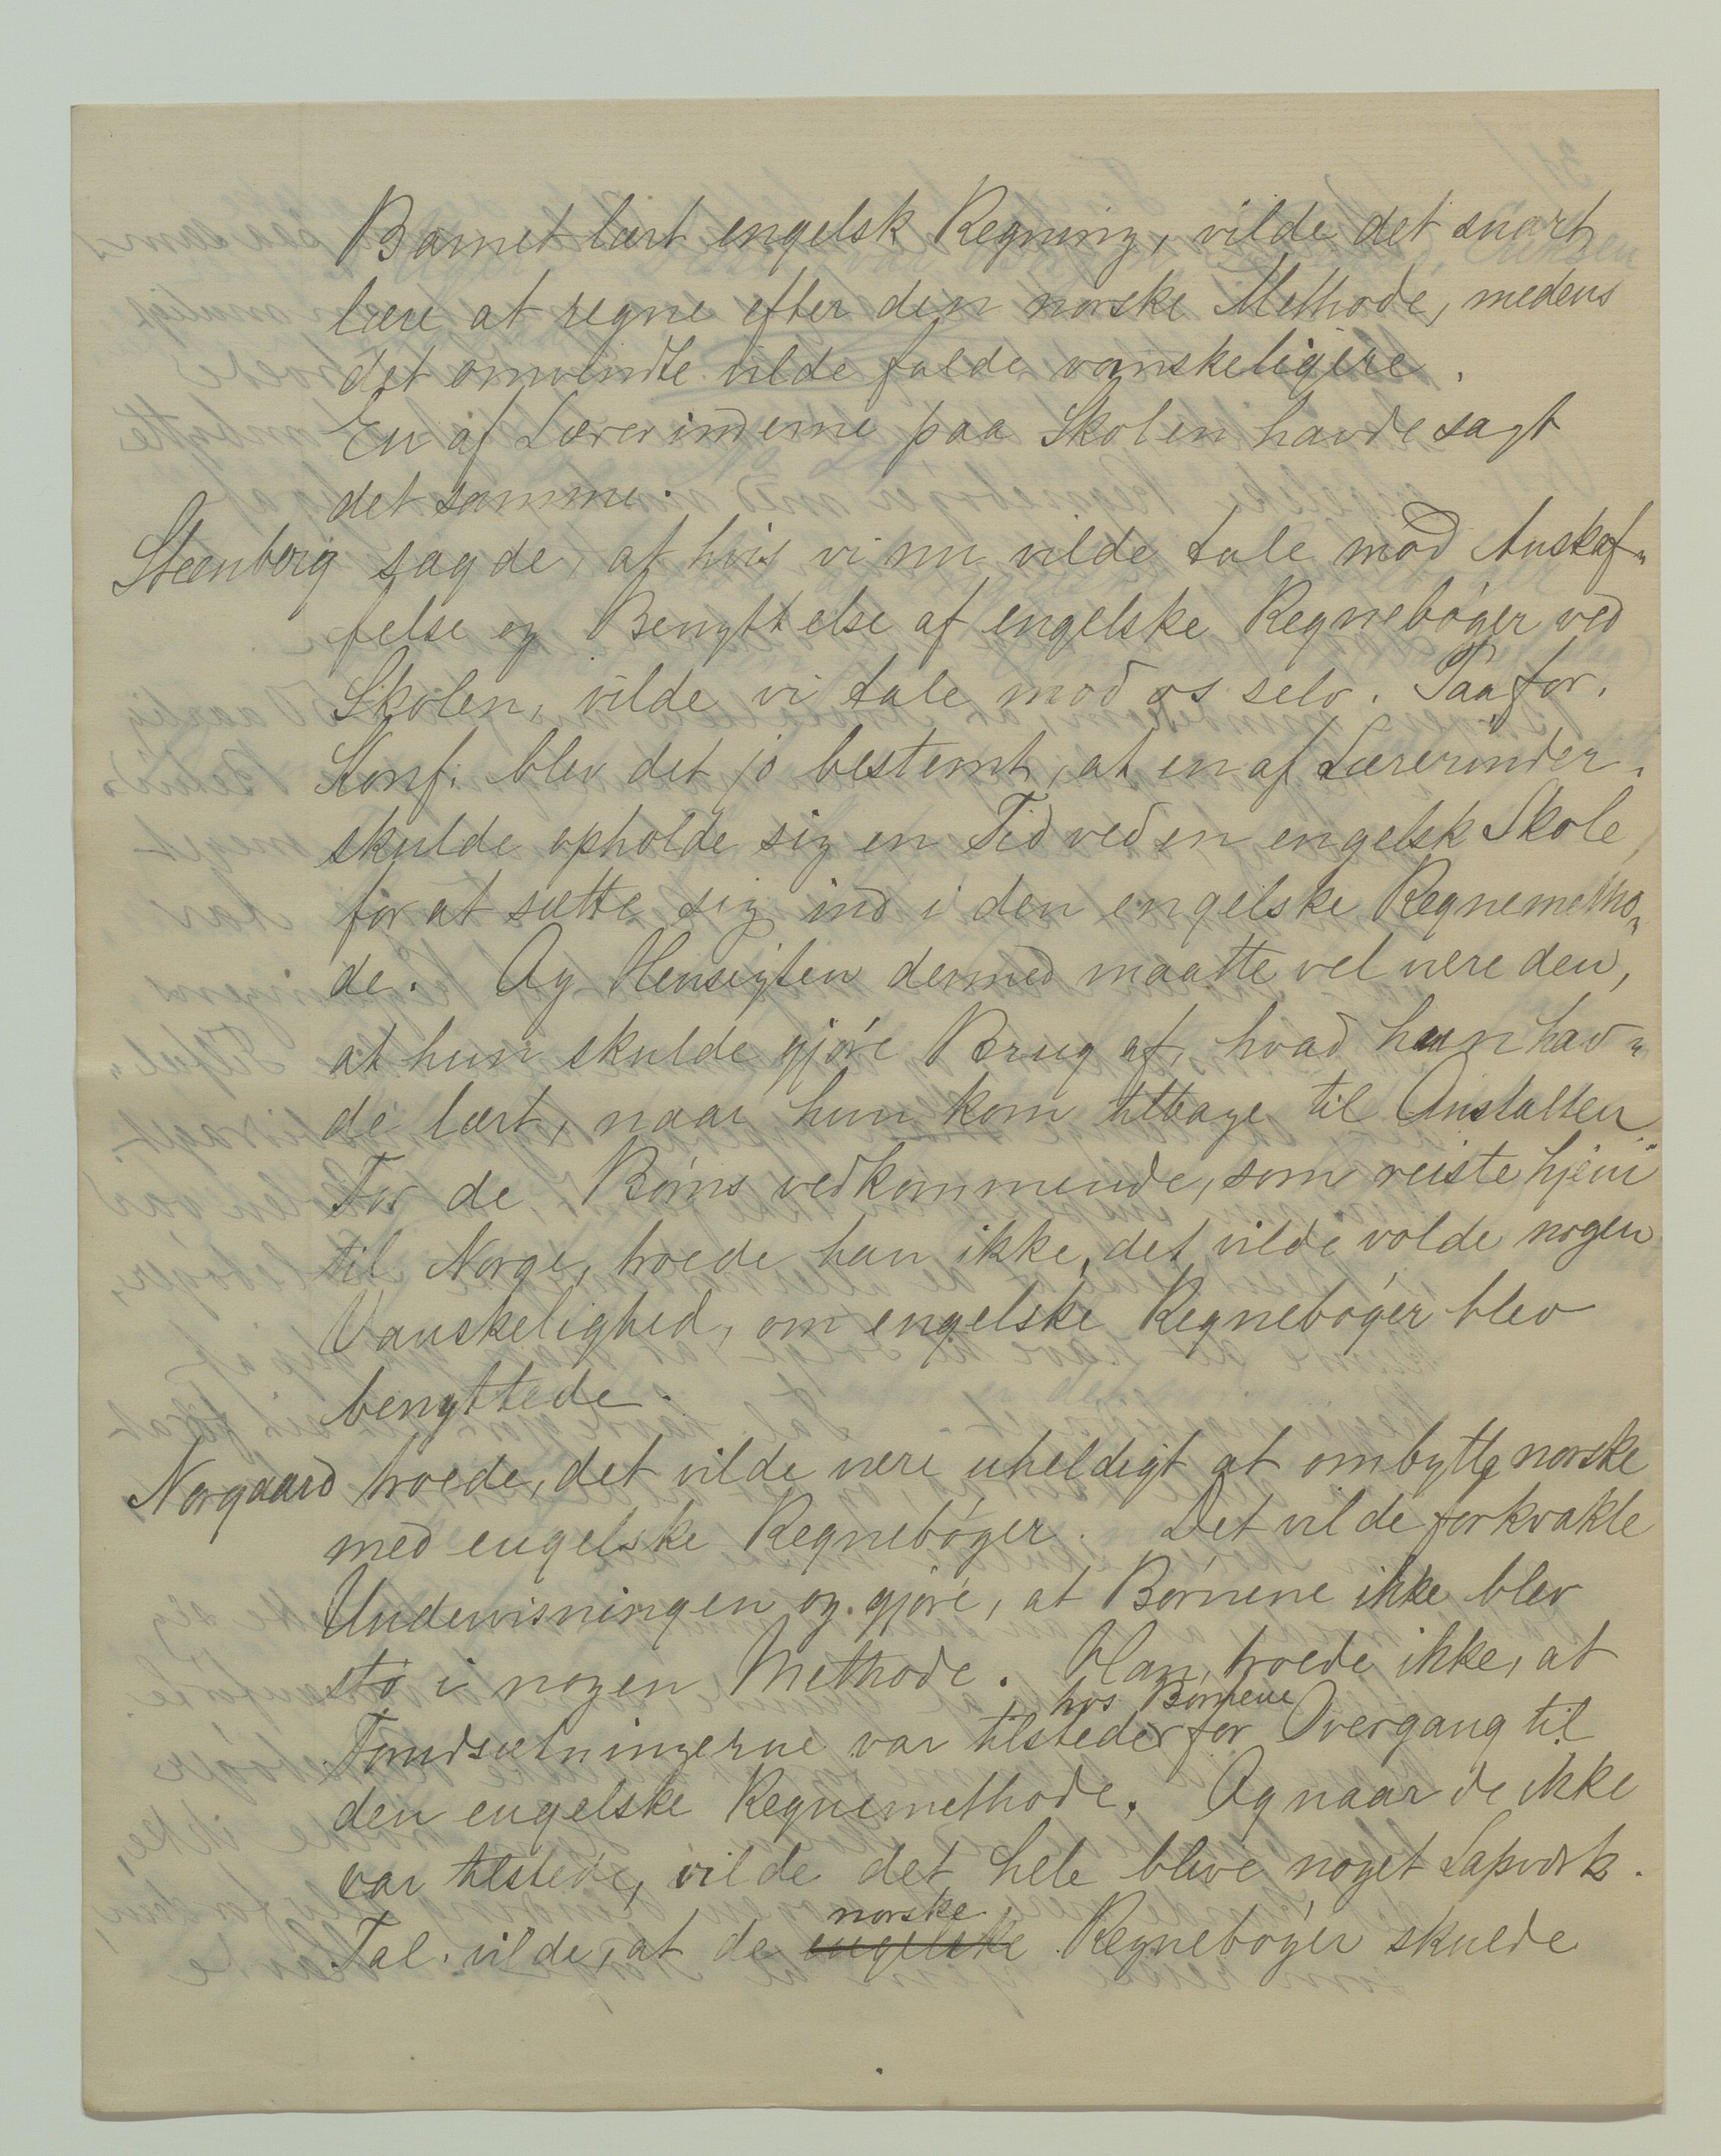 Barnet lært engelsk Regning, vilde det snart
lære at regne efter den norske Methode, medens
det omvendte vilde falde vanskeligere.
En af Lærerinderne paa Skolen havde sagt
det samme.
Steenberg sagde, at hvis vi nu vilde tale mod Anskaf„
felse og Benyttelse af engelske Regnebøger ved
Skolen, vilde vi tale mod os selv. Paa for.
Konf. blev det jo bestemt, at en af Lærerinder.
skulde opholde sig en Tid ved en engelsk Skole
for at sætte sig ind i den engelske Regnemetho„
de. Og Hensigten dermed maatte vel være den,
at hun skulde gjøre Brug af, hvad hun hav„
de lært, naar hun kom tilbage til Anstalten.
For de Børns vedkommende, som reiste hjem
til Norge, troede han ikke, det vilde volde nogen
Vanskelighed, om engelske Regnebøger blev
benyttede.
Norgaard troede, det vilde være uheldigt at ombytte norske
med engelske Regnebøger. Det vilde forkvakle
Undervisningen og gjøre, at Børnene ikke blev
stø i nogen Methode. Han troede ikke, at
hos Børnene
Forudsætningerne var tilstede for Overgang til
den engelske Regnemethode. Og naar de ikke
var tilstede, vilde det hele blive noget Lapværk.
norske
Tal. vilde, at de engelske Regnebøger skulde